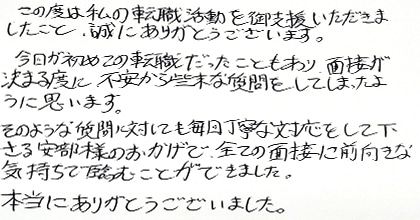 この度は私の転職活動を御支援いただきま
したこと、誠にありがとうございます。
今回が初めての転職だったこともあり、面接が
決まる度に不安から些末な質問をしてしまったよ
うに思います。
そのような質問に対しても毎回丁寧な対応をして下
さる安部様のおかげで、全ての面接に前向きな
気持ちで臨むことができました。
本当にありがとうございました。